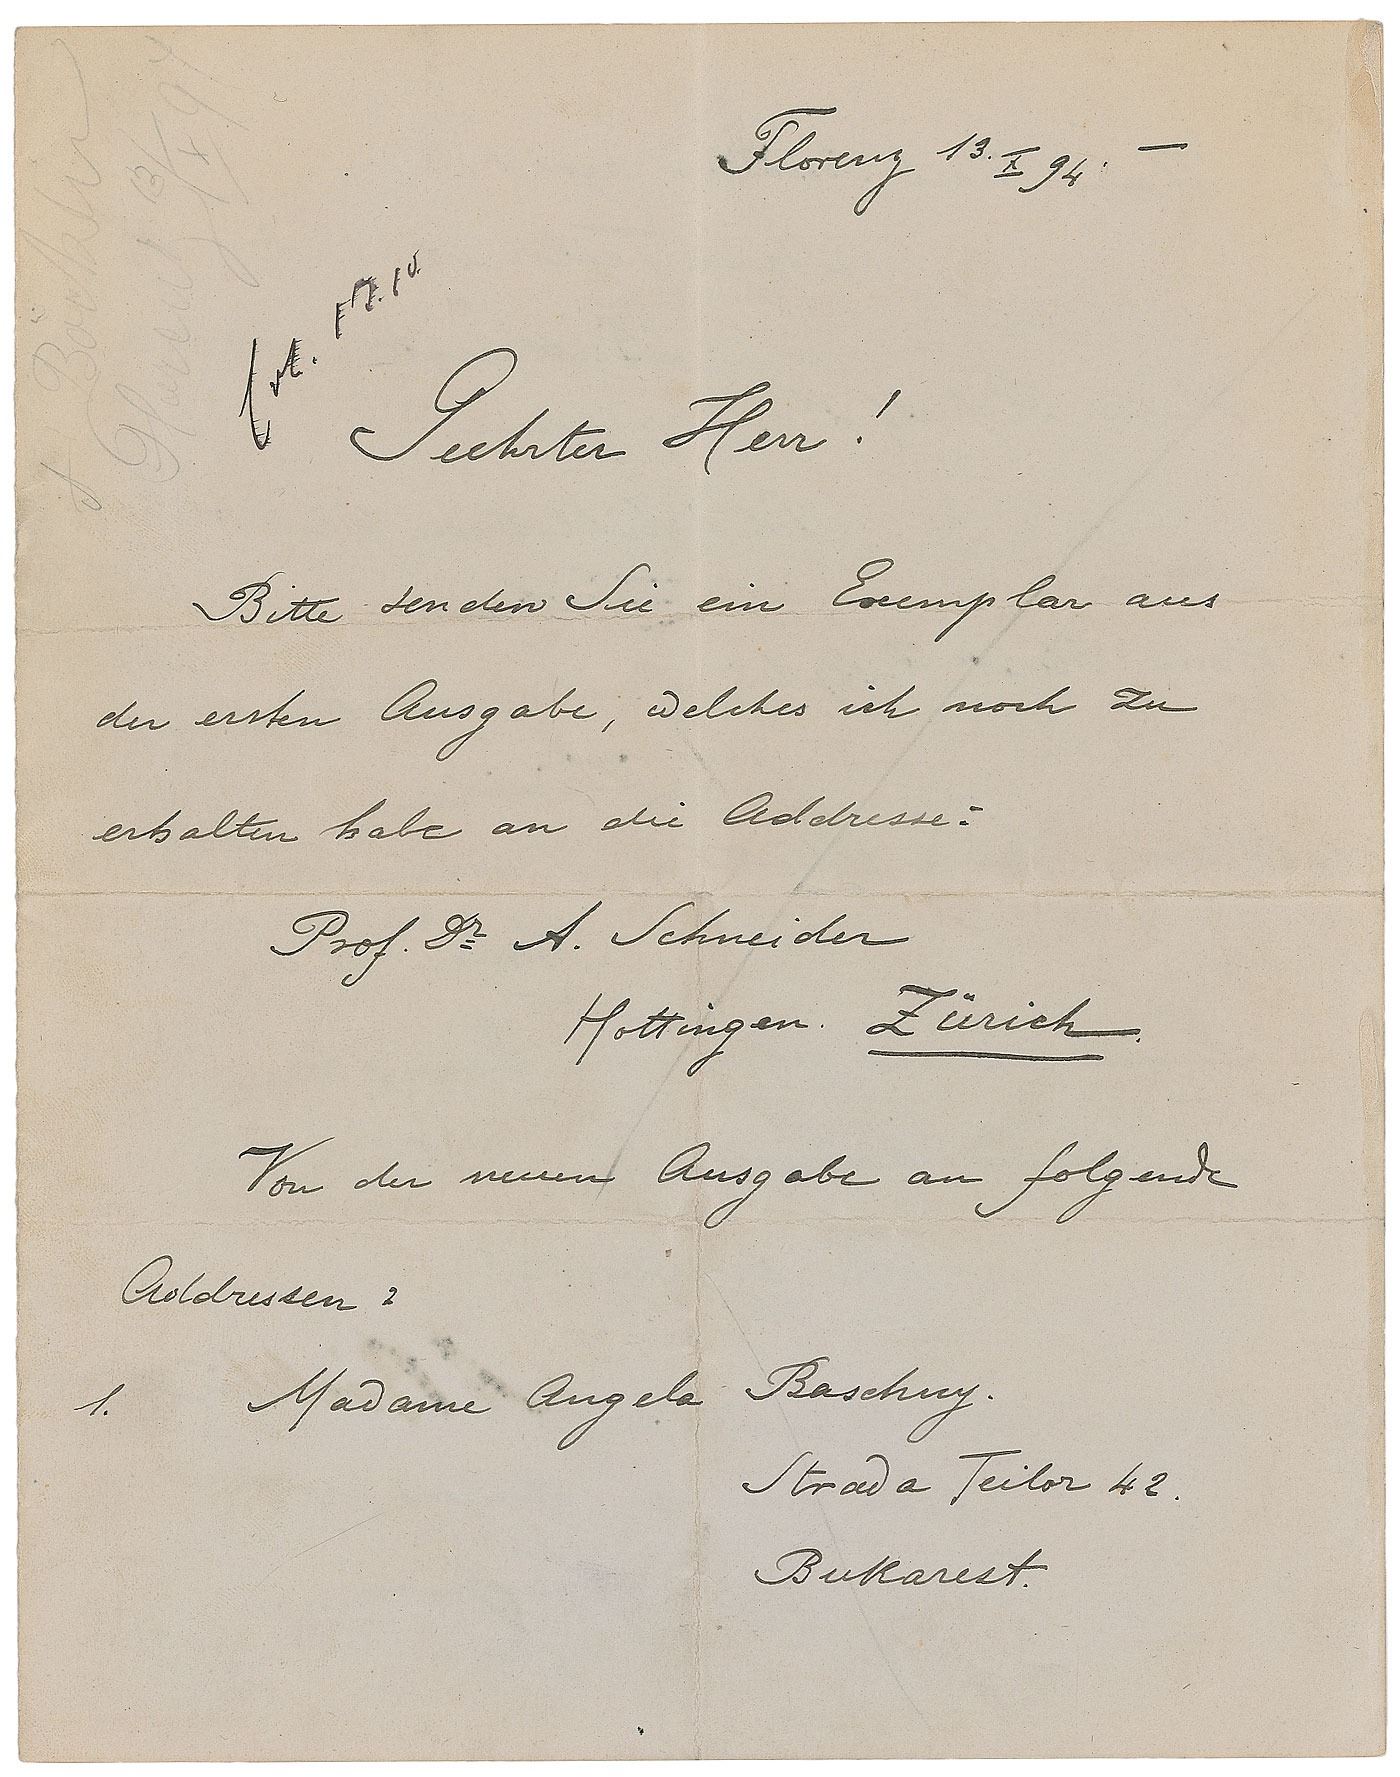 Florenz 13. X 94. —
Geehrter Herr!
Bitte senden Sie ein Exemplar aus
der ersten Ausgabe, welches ich noch zu
erhalten habe an die Addresse:
Prof. Dr. A. Schneider
Hottingen. Zürich.
Von der neuen Ausgabe an folgende
Addressen:
1. Madame Angela
Strada Teilor 42.
Bukarest.